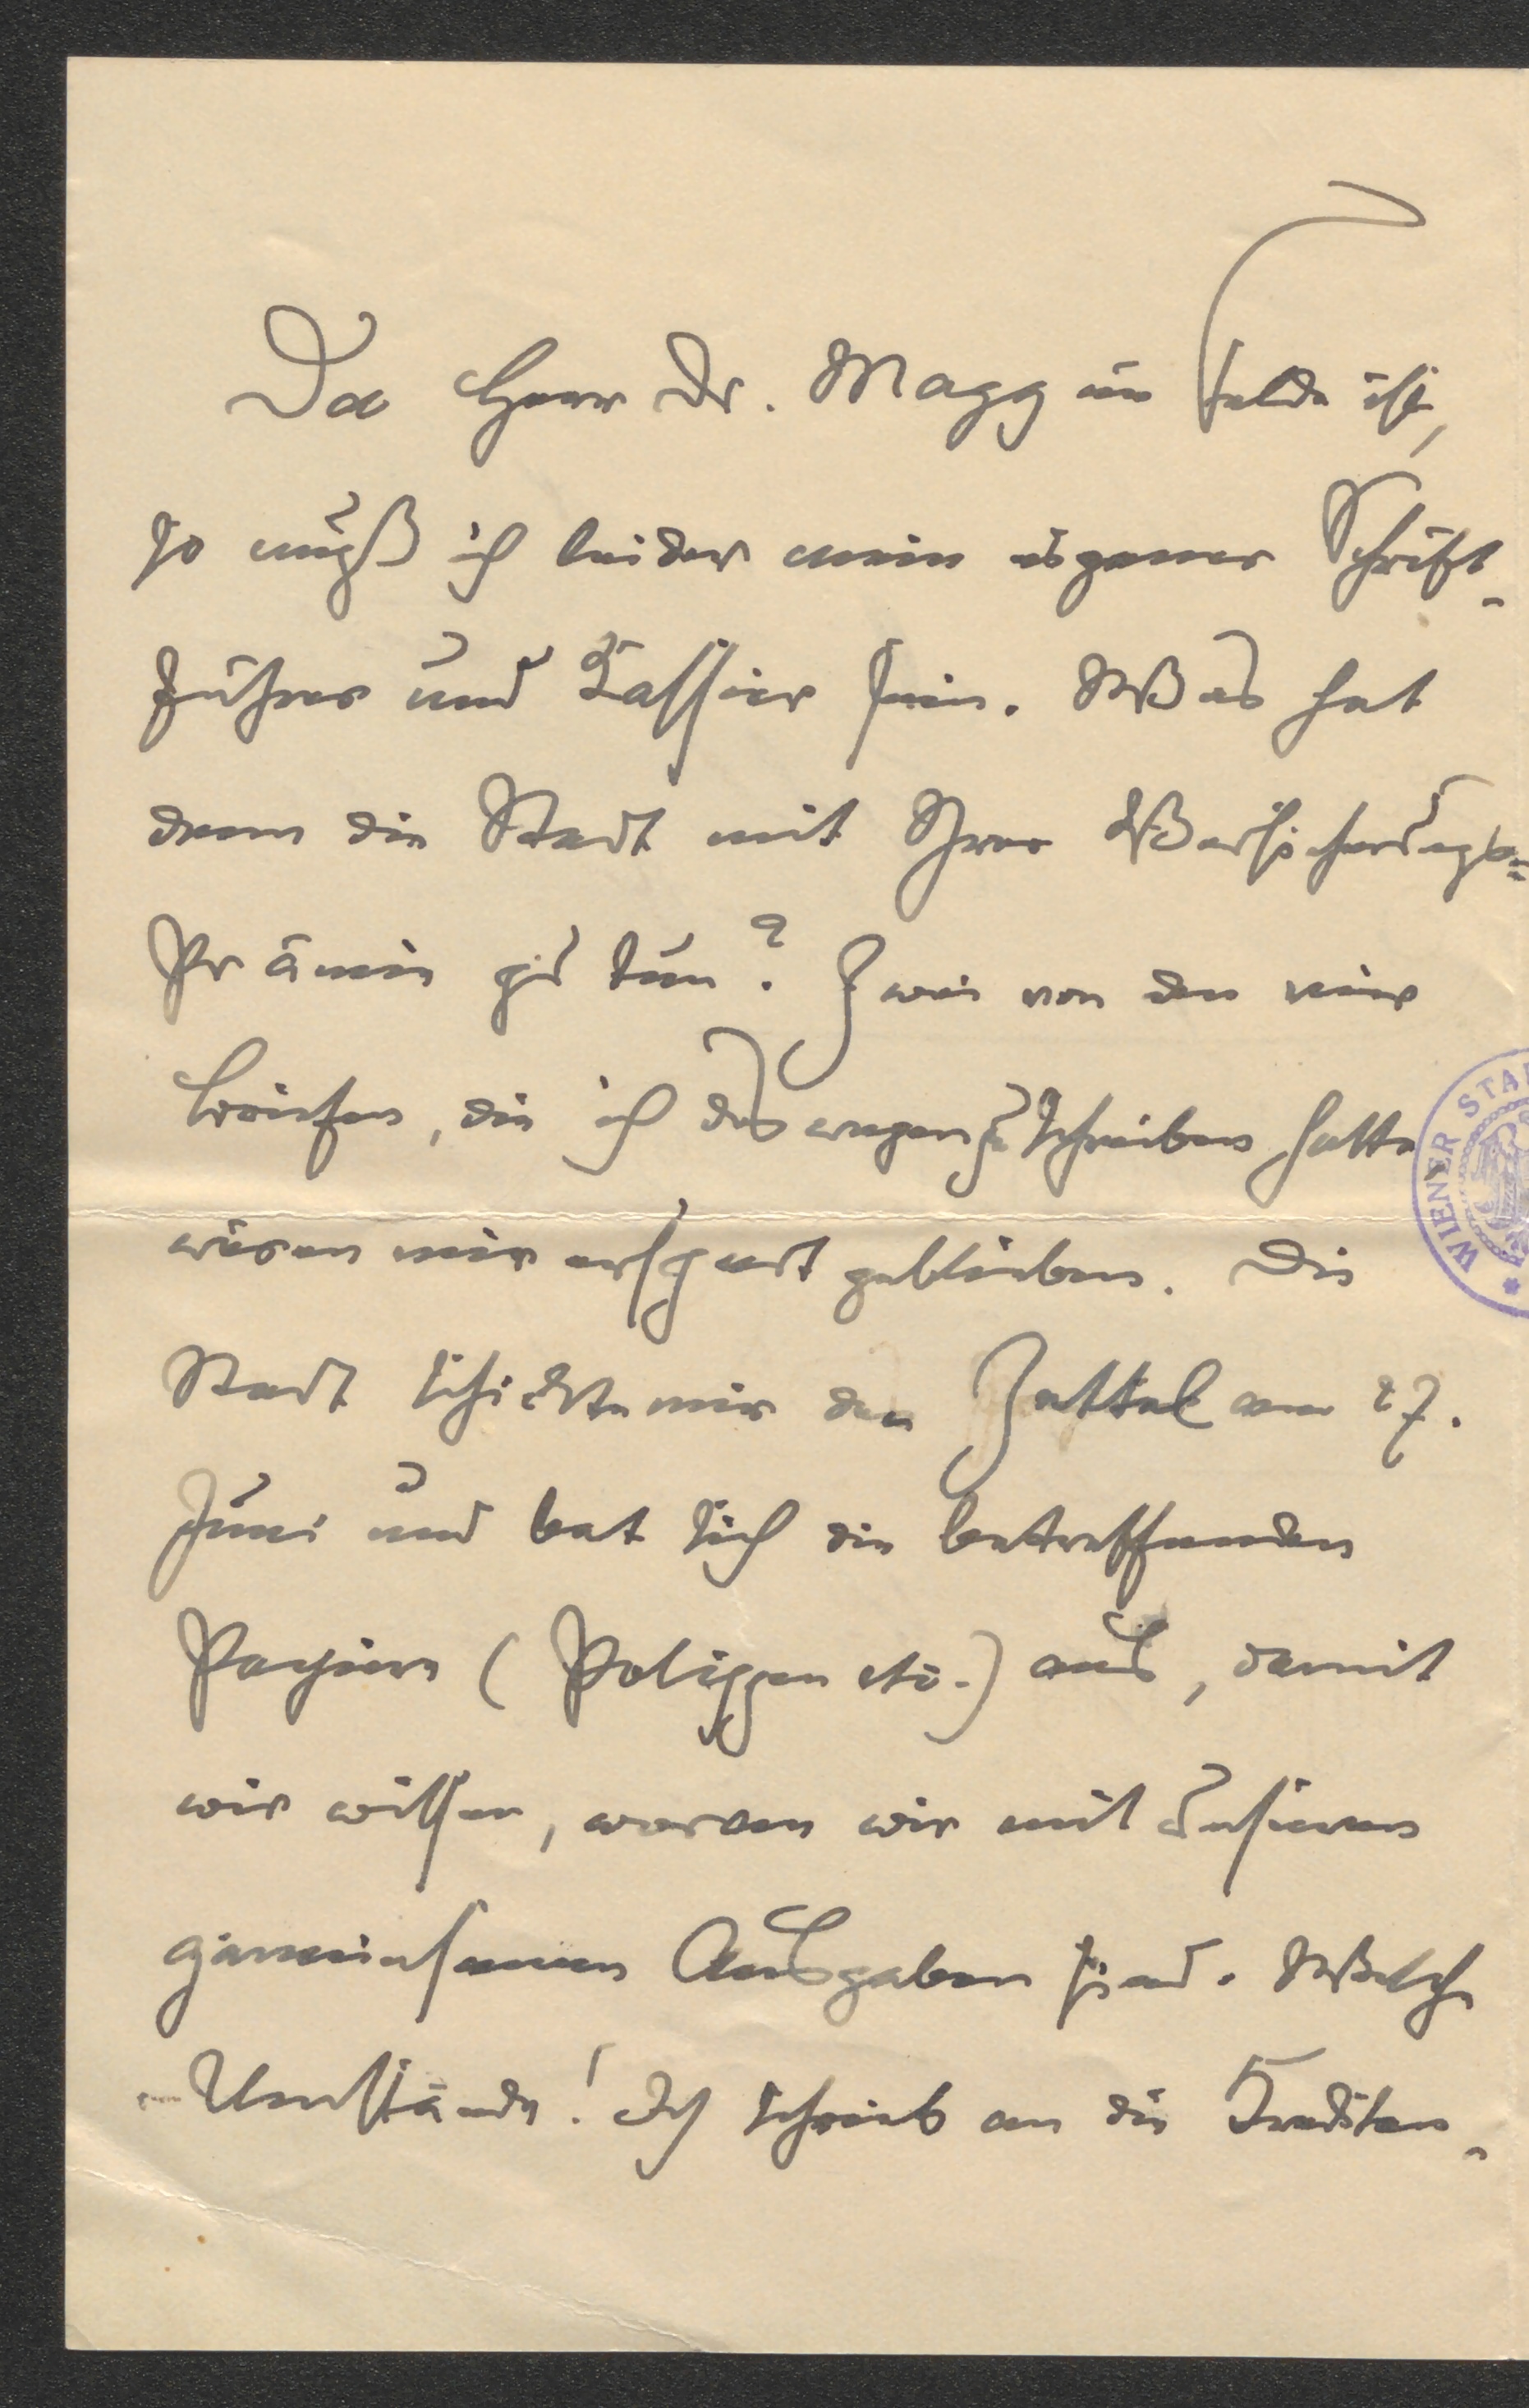 Da Herr Dr. Magg im Felde ist,
so muß ich leider mein eigener Schrift-
führer und Kassier sein. Was hat
denn die Stadt mit Ihrer Versicherungs=
Prämie zu tun? Zwei von den vier
Briefen, die ich deswegen zu schreiben hatte
wären mir erspart geblieben. Die
Stadt schickte mir den Zettel am 27.
Juni und bat sich die betreffenden
Papiere (Polizzen etc.) aus, damit
wir wissen, woran wir mit unseren
gemeinsamen Ausgaben sind. Welche
Umstände! Ich schrieb an die Kreditan-
WIENER STA